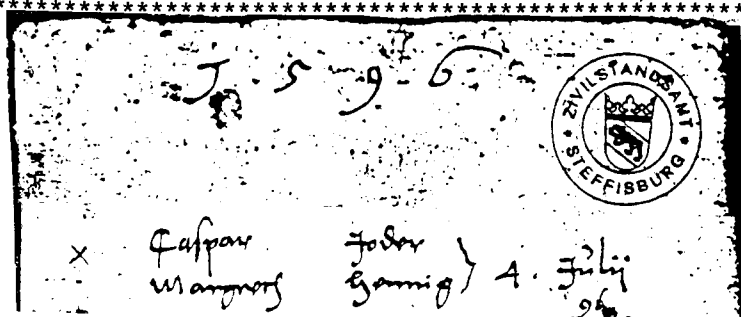 J. 5 9 6
ZIVILSTANDSAMT
STEFFISBURG
Caspar Joder
Margreth Hennig } 4. Julij
96